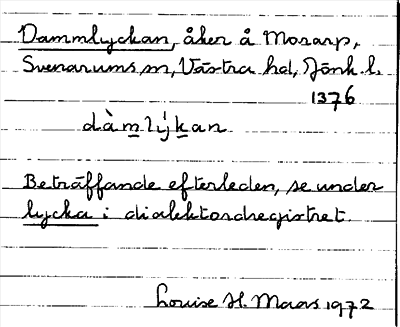 Dammlyckan, åker å Mosarp,
Svenarums sn, Västra hd, Jönk. l.
1376
dàmlýkan
Beträffande efterleden, se under
lycka i dialektordregistret.
Louise H. Maas 1972